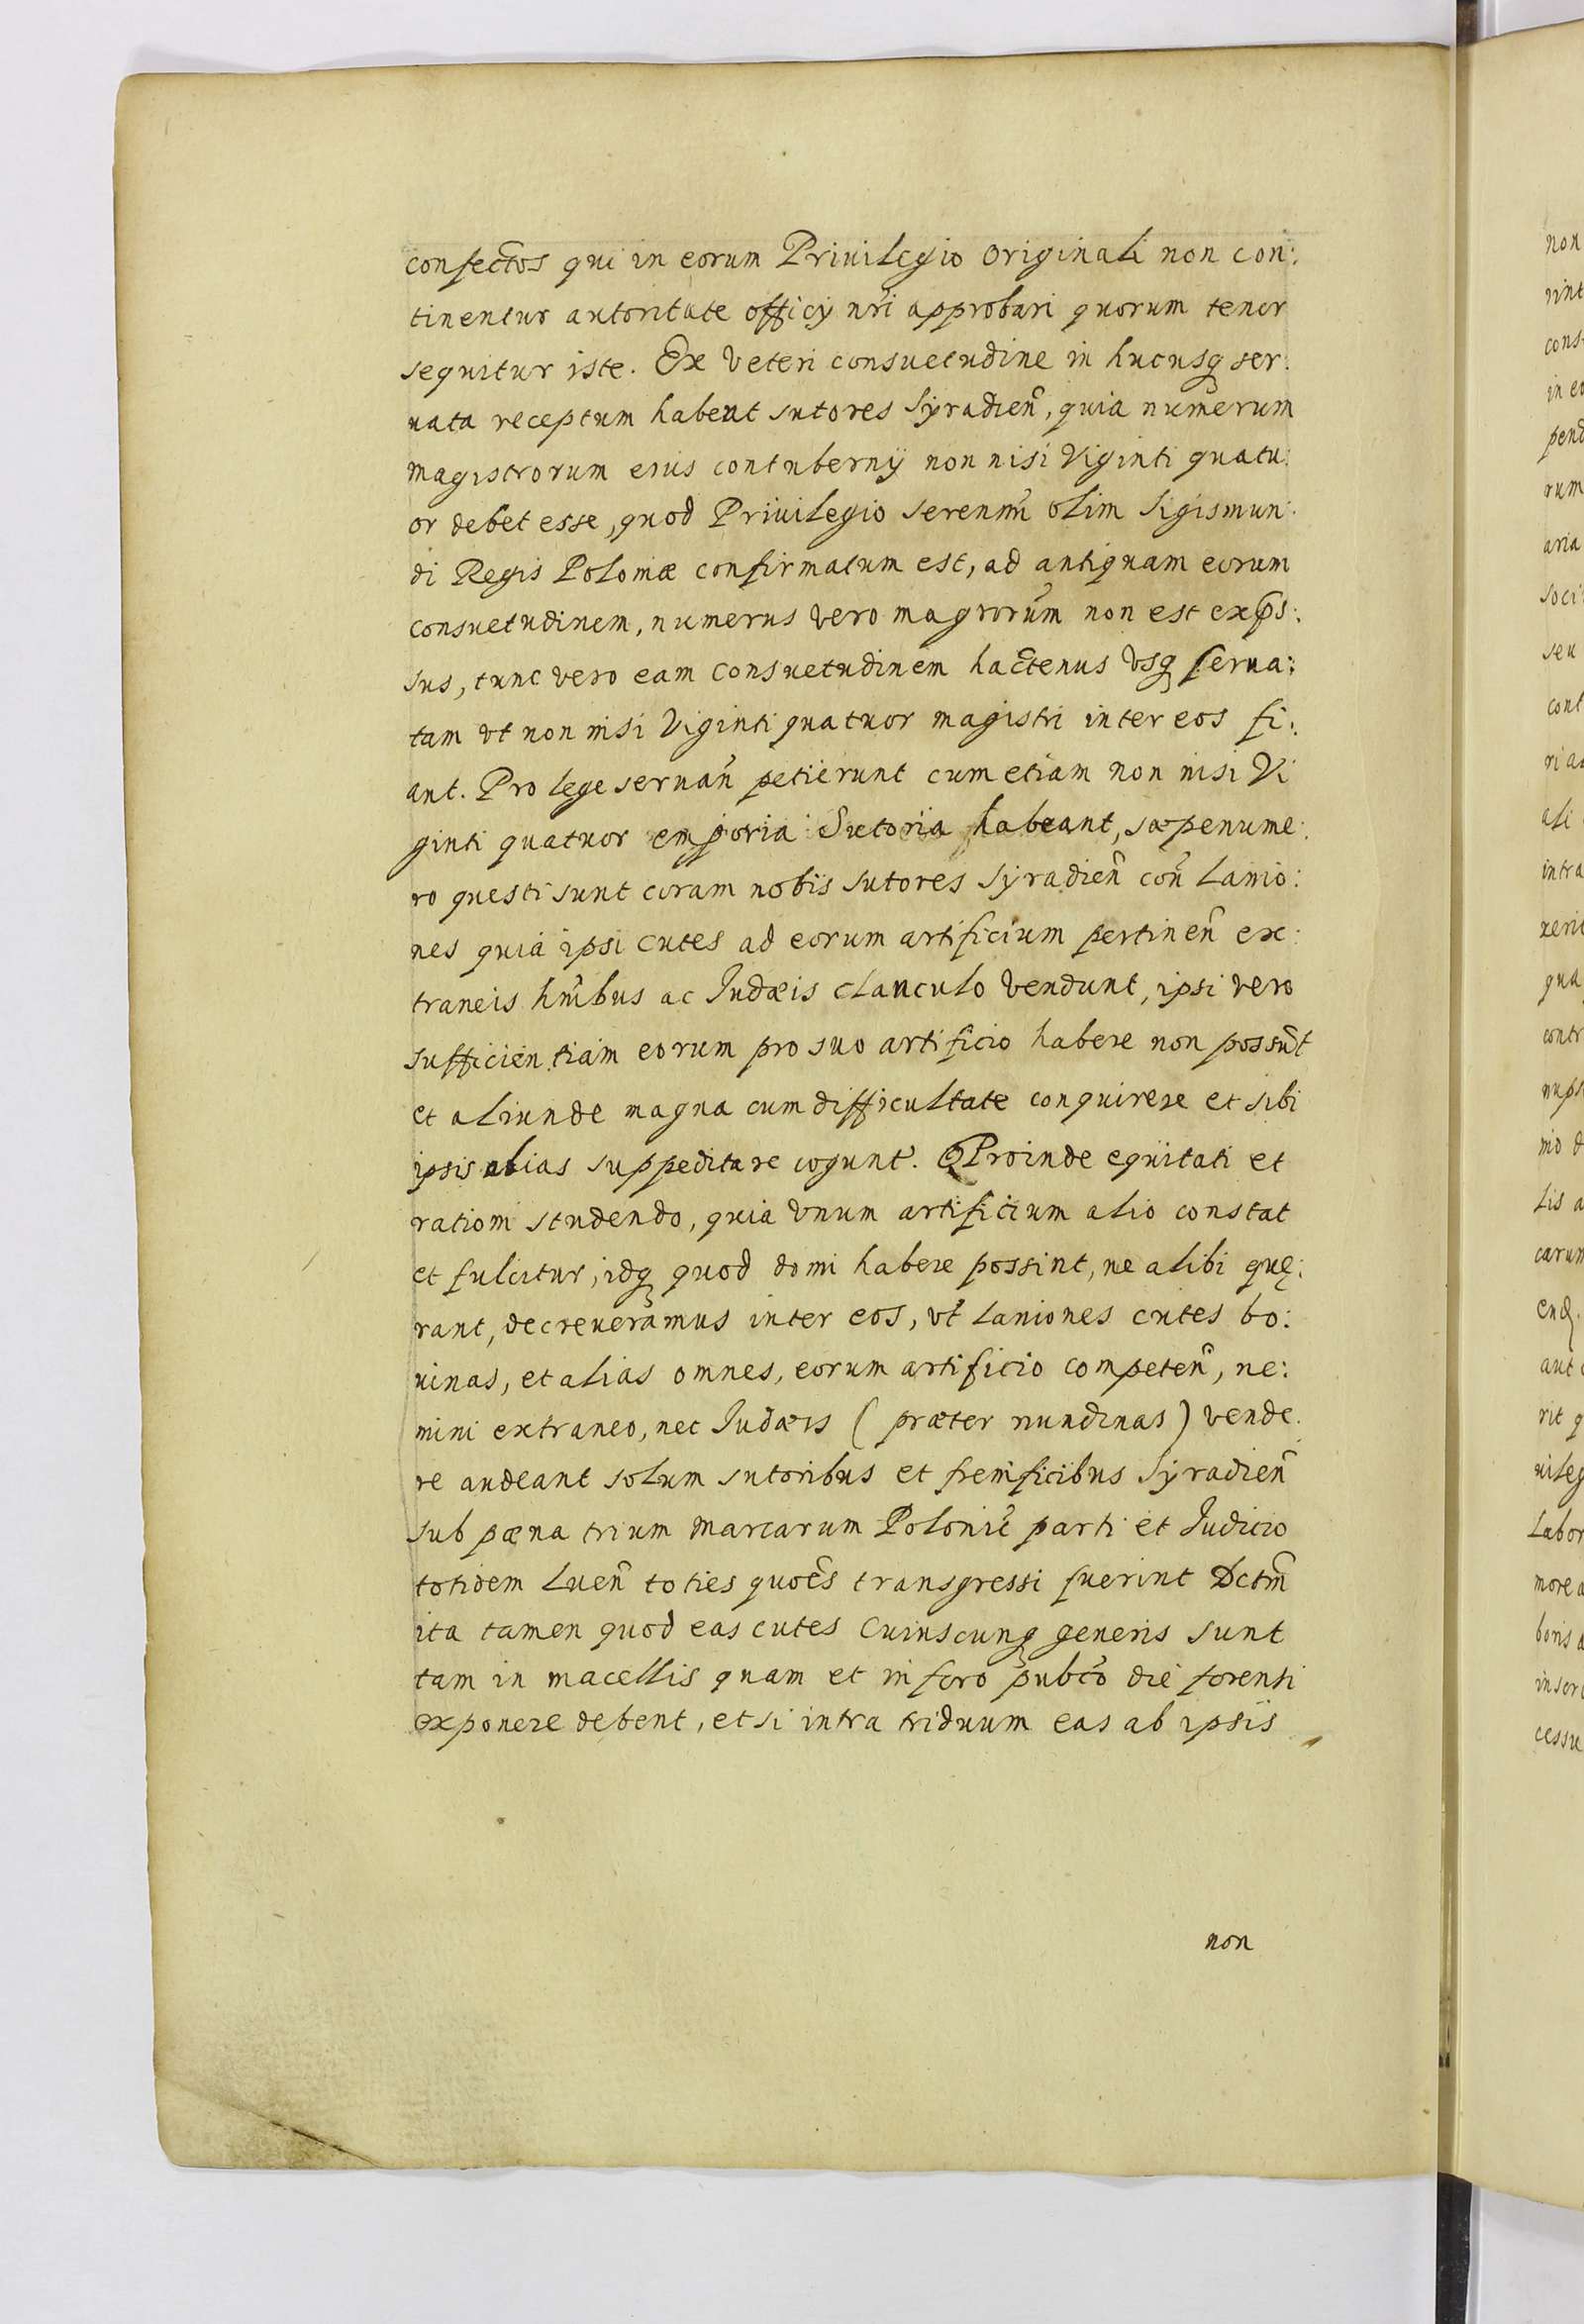 confectos qui in eorum Priuilegio Originali non con:
tinentur autoritate officÿ nr̃i approbari quorum tenor
sequitur iste. Ex Veteri consuetudine in hucusq ser:
uata receptum habent sutores Syradien̄, quia numerum
magistrorum eius contubernÿ non nisi Viginti quatu:
or debet esse, quod Priuilegio serenmi olim Sigismun:
di Regis Poloniæ confirmatum est, ad antiquam eorum
consuetudinem, numerus vero magrorum non est exp̃s:
sus, tunc vero eam consuetudinem hactenus Vsq serua:
tam vt non nisi Viginti quatuor magistri inter eos fi:
ant. Pro lege seruan̄ petierunt cum etiam non nisi Vi
ginti quatuor emporia Sutoria habeant, sæpenume:
ro questi sunt coram nobis sutores Syradien̄ con̄ Lanio:
nes quia ipsi cutes ad eorum artificium pertinen̄ ex:
traneis hm̃ibus ac Iudæis clanculo vendunt, ipsi vero
sufficientiam eorum pro suo artificio habere non possũt
et aliunde magna cum difficultate conquirere et sibi
ipsis alias suppeditare cogunt̃. Proinde equitati et
rationi studendo, quia vnum artificium alio constat
et fulcitur, idq quod domi habere possint, ne alibi quę:
rant, decreueramus inter eos, vt laniones cutes bo:
uinas, et alias omnes, eorum artificio competen̄, ne:
mini extraneo, nec Iudæis (præter nundinas) vende:
re audeant solum sutoribus et frenificibus Syradien̄
sub pœna trium marcarum Poloniẽ parti et Iudicio
totidem Luen̄ toties quoẽs transgressi fuerint Dctm̃
ita tamen quod eas cutes cuiuscunq generis sunt
tam in macellis quam et in foro pubc̃o die forensi
exponere debent, et si intra triduum eas ab ipsis
non